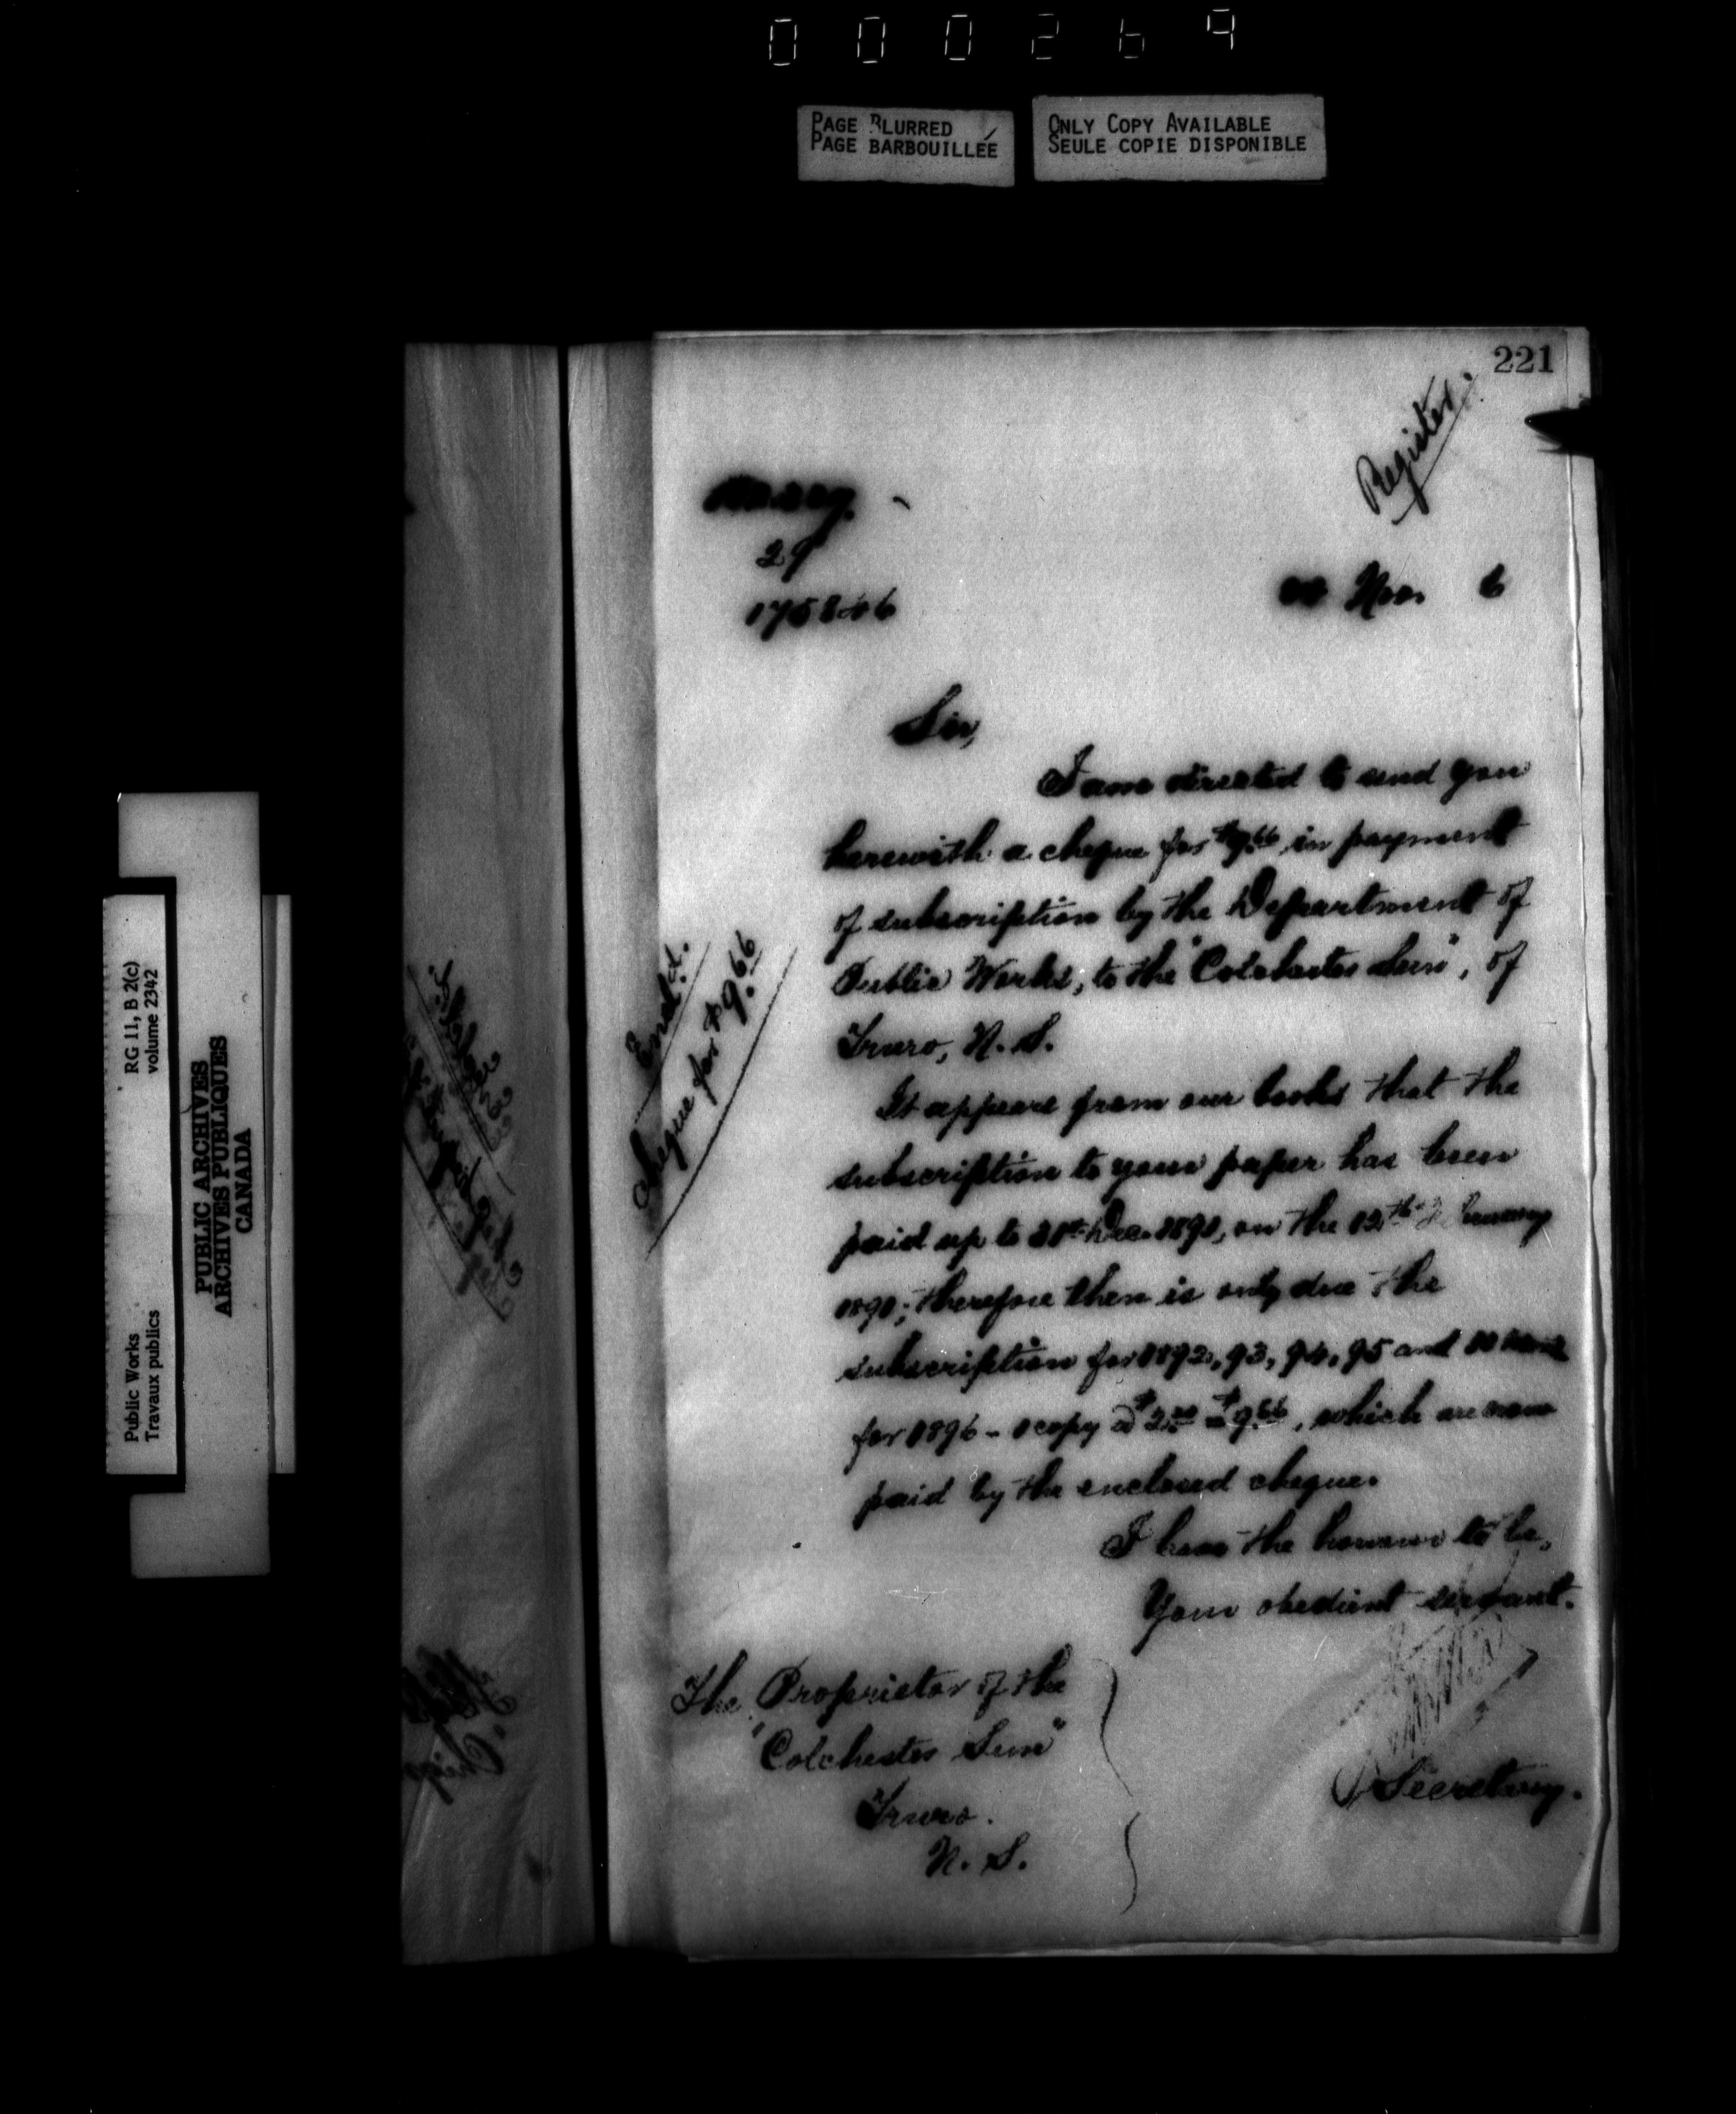 000269
PAGE BLURRED
PAGE BARBOUILLÉE
ONLY COPY AVAILABLE
SEULE COPIE DISPONIBLE
221
Register.
29
Nov. 6
Sir,
I am directed to send you
herewith a cheque for $9.66 in payment
of subscription by the Department of
Public Works, to the "Colchester Sun", of
Truro, N.S.
It appears from our books that the
subscription to your paper has been
paid up to 31st Dec. 1891, on the 12th February
1891; therefore there is only due the
subscription for 1892, 93, 94, 95 and 10
for 1896 - 1 copy @ $2.00 = $9.66, which are now
paid by the enclosed cheque.
I have the honour to be,
Your obedient servant.
Secretary.
The Proprietor of the
"Colchester Sun"
Truro.
N.S.
Encl.
Cheque for $9.66
Public Works
Travaux publics
RG 11, B 2(c)
volume 2342
PUBLIC ARCHIVES
ARCHIVES PUBLIQUES
CANADA